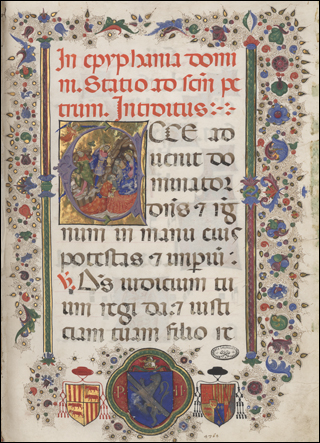 In epyphania domi
ni. Statio ad scm pe
trum. Introitus:
CCE ad
uenit do
minator
dns et reg
num in manu eius
potestas et imperiu:
Ds iudicium tu
um regi da: et iusti
ciam tuam filio re
P II